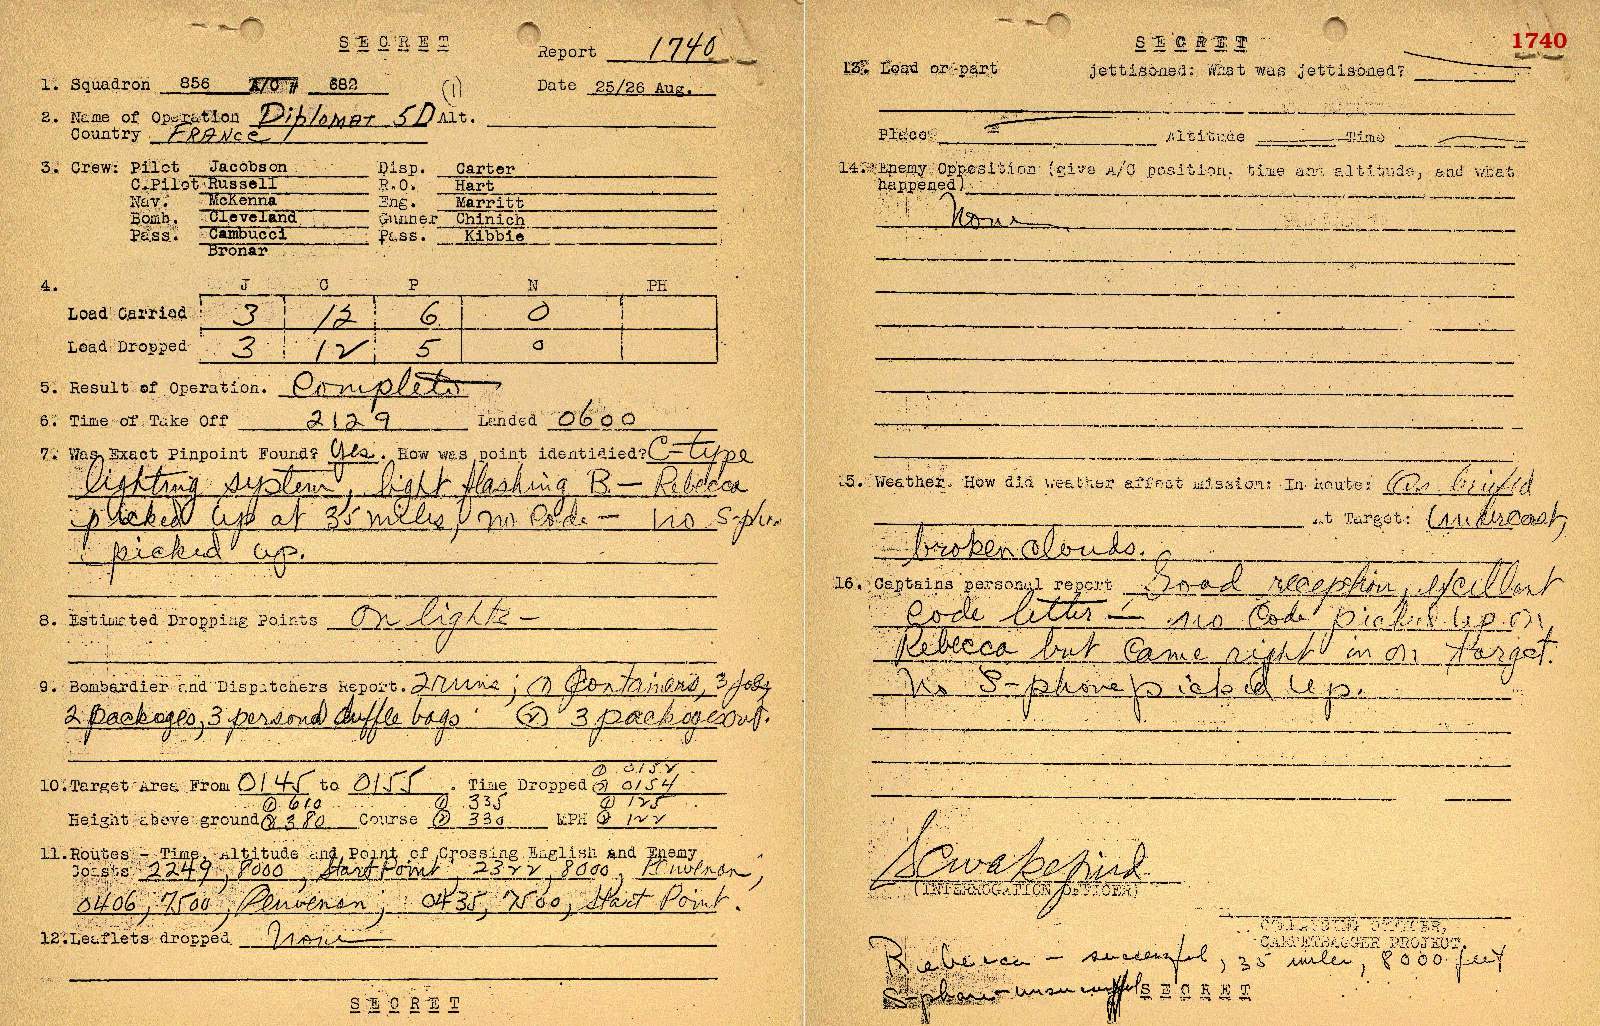 SECRET
Report 1740
1. Squadron 856 A/C # 682 (1) Date 25/26 Aug.
2. Name of Operation Diplomat 5D Alt.
Country FRANCE
3. Crew: Pilot Jacobson Disp. Carter
C.Pilot Russell R.O. Hart
Nav. McKenna Eng. Marritt
Bomb. Cleveland Gunner Chinich
Pass. Cambucci Pass. Kibbie
Bronar
4. J C P N PH
Load Carried 3 12 6 0
Load Dropped 3 12 5 0
5. Result of Operation. Complete
6. Time of Take Off 2129 Landed 0600
7. Was Exact Pinpoint Found? Yes. How was point identidied? C-type
lighting system, light flashing B — Rebecca
picked up at 35 miles, no Code — no S-phone
picked up.
8. Estimated Dropping Points On lights —
9. Bombardier and Dispatchers Report. 2 runs; (1) Containers, 3 Joes
2 packages, 3 personal duffle bags (2) 3 packages out.
(1) 0152
10. Target Area From 0145 to 0155. Time Dropped (2) 0154
(1) 610 (1) 335 (1) 125
Height above ground (2) 380 Course (2) 330 MPH (2) 122
11. Routes - Time, Altitude and Point of Crossing English and Enemy
Coasts 2249, 8000, Start Point, 2322, 8000, Pleuvenon,
0406, 7500, Pleuvenon; 0435, 7500, Start Point.
12. Leaflets dropped None
SECRET
1740
SECRET
13. Load or part jettisoned: What was jettisoned?
Place Altitude Time
14. Enemy Opposition (give A/C position, time and altitude, and what
happened)
None
15. Weather. How did weather affect mission: In Route: As briefed
At Target: Undercast,
broken clouds.
16. Captains personal report Good reception, excellent
code letter — no Code picked up on
Rebecca but came right in on target.
No S-phone picked up.
(INTERROGATION OFFICER)
COMMANDING OFFICER,
CARPETBAGGER PROJECT.
Rebecca — successful, 35 miles, 8000 feet
S-phone — unsuccessful
SECRET